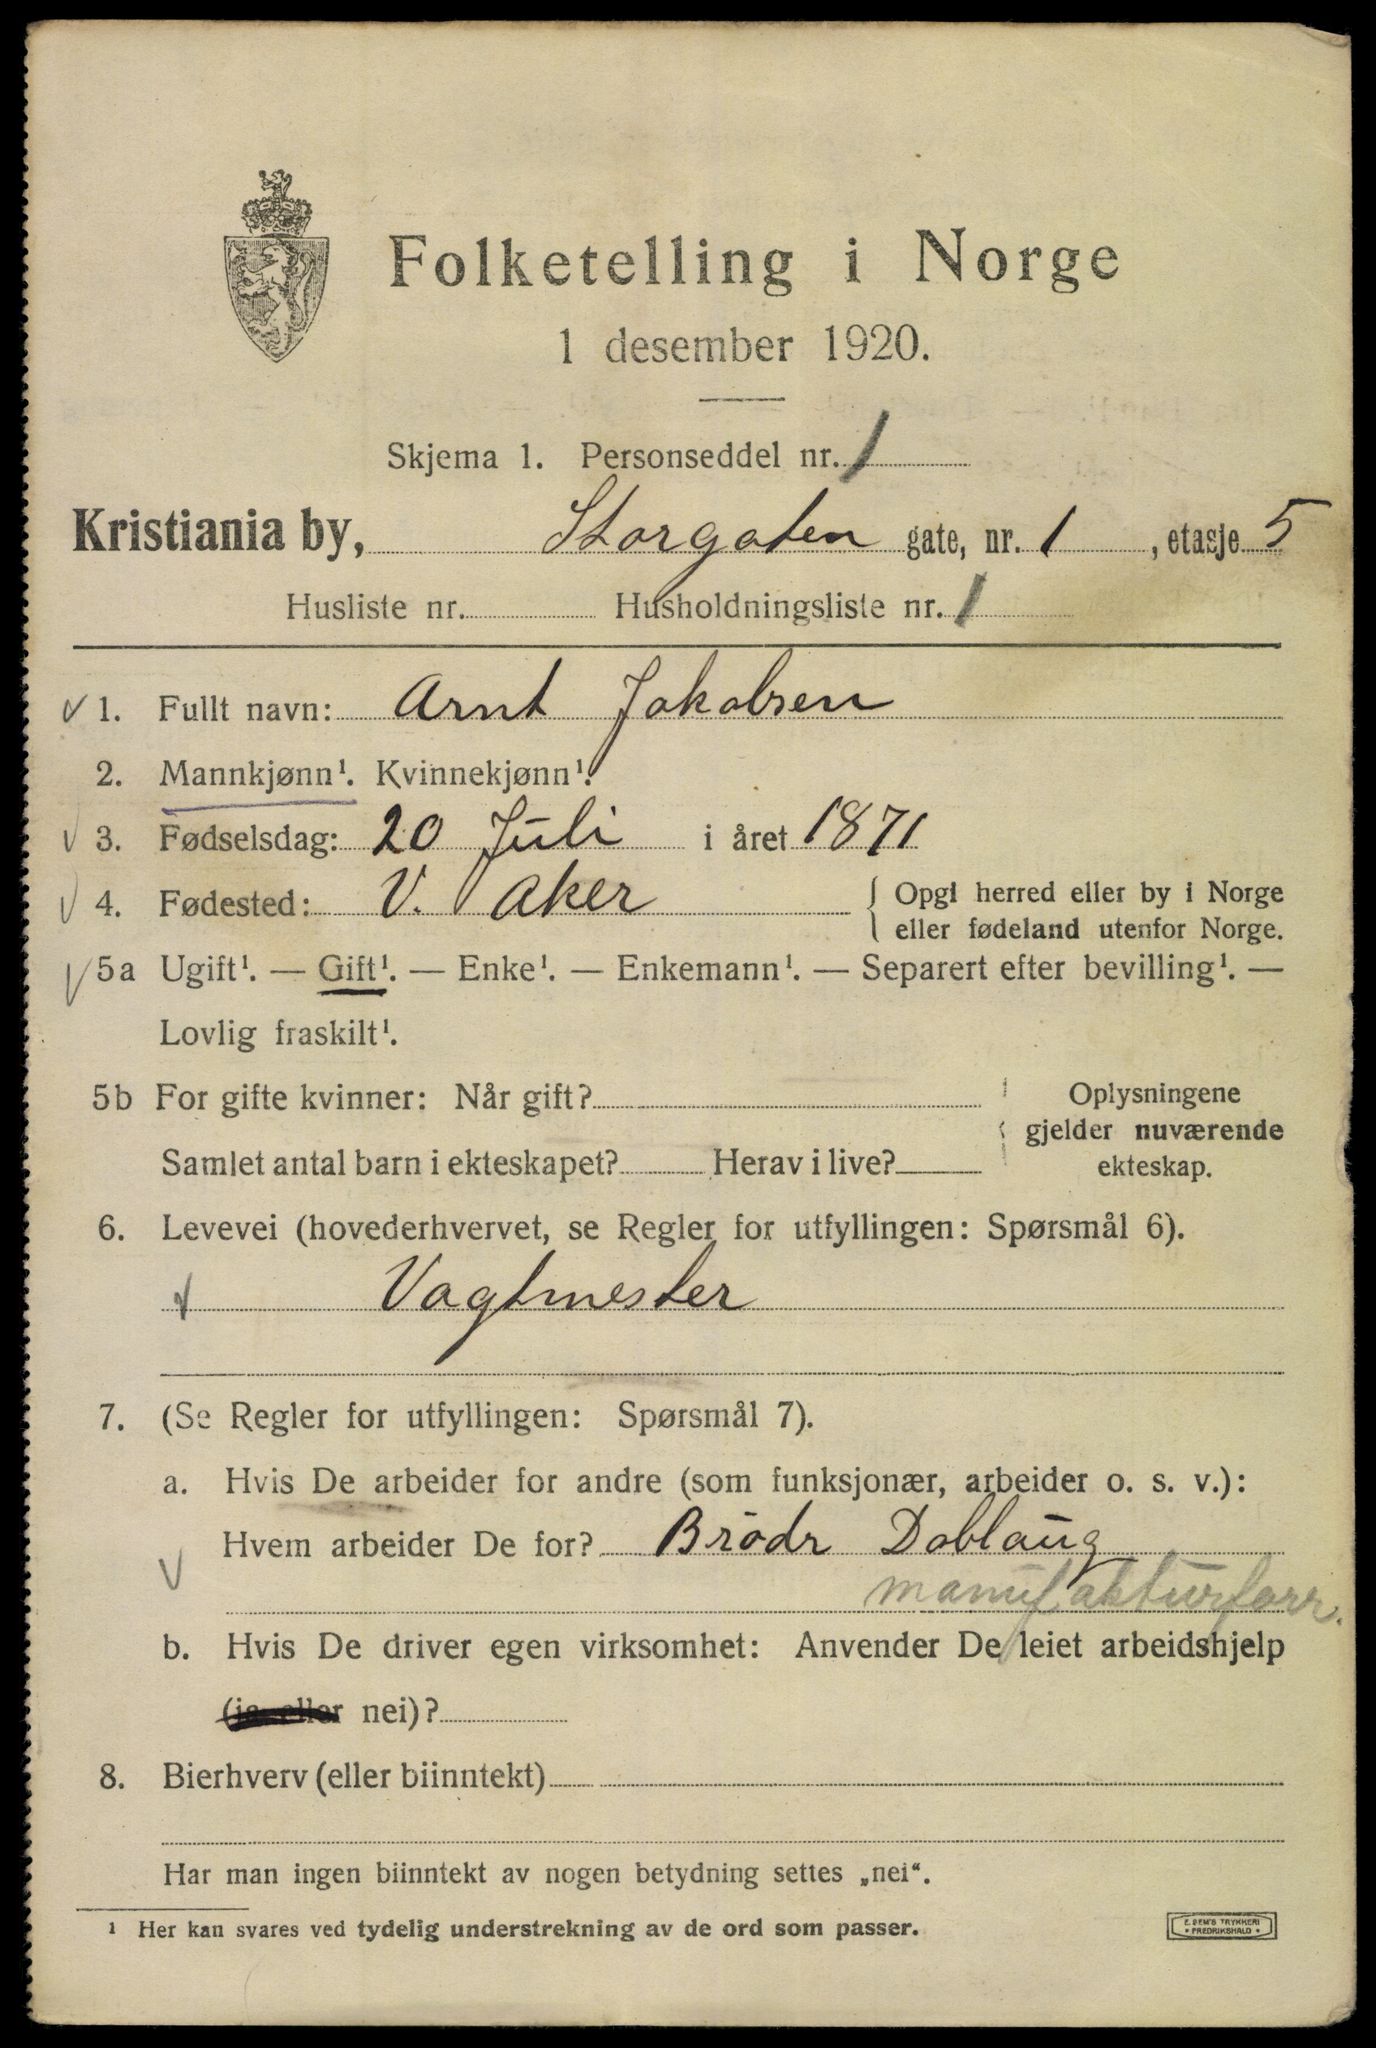 Folketelling i Norge
1 desember 1920.
Skjema 1. Personseddel nr. 1
Kristiania by, Storgaten gate, nr. 1, etasje 5
Husliste nr. Husholdningsliste nr. 1
1. Fullt navn: Arnt Jakobsen
2. Mannkjønn¹. Kvinnekjønn¹.
3. Fødselsdag: 20 Juli i året 1871
4. Fødested: V. Aker { Opgi herred eller by i Norge
eller fødeland utenfor Norge.
5a Ugift¹. — Gift¹. — Enke¹. — Enkemann¹. — Separert efter bevilling¹. —
Lovlig fraskilt¹.
5b For gifte kvinner: Når gift? Oplysningene
gjelder nuværende
Samlet antal barn i ekteskapet? Herav i live? ekteskap.
6. Levevei (hovederhvervet, se Regler for utfyllingen: Spørsmål 6).
Vagtmester
7. (Se Regler for utfyllingen: Spørsmål 7).
a. Hvis De arbeider for andre (som funksjonær, arbeider o. s. v.):
Hvem arbeider De for? Brödr Doblaug
manufakturforr.
b. Hvis De driver egen virksomhet: Anvender De leiet arbeidshjelp
(ja eller nei)?
8. Bierhverv (eller biinntekt)
Har man ingen biinntekt av nogen betydning settes „nei“.
¹ Her kan svares ved tydelig understrekning av de ord som passer.
E. SEM'S TRYKKERI
• FREDRIKSHALD •